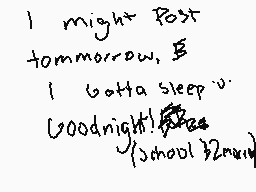 I might Post
tommorrow,
I Gotta sleep
Goodnight!
(school